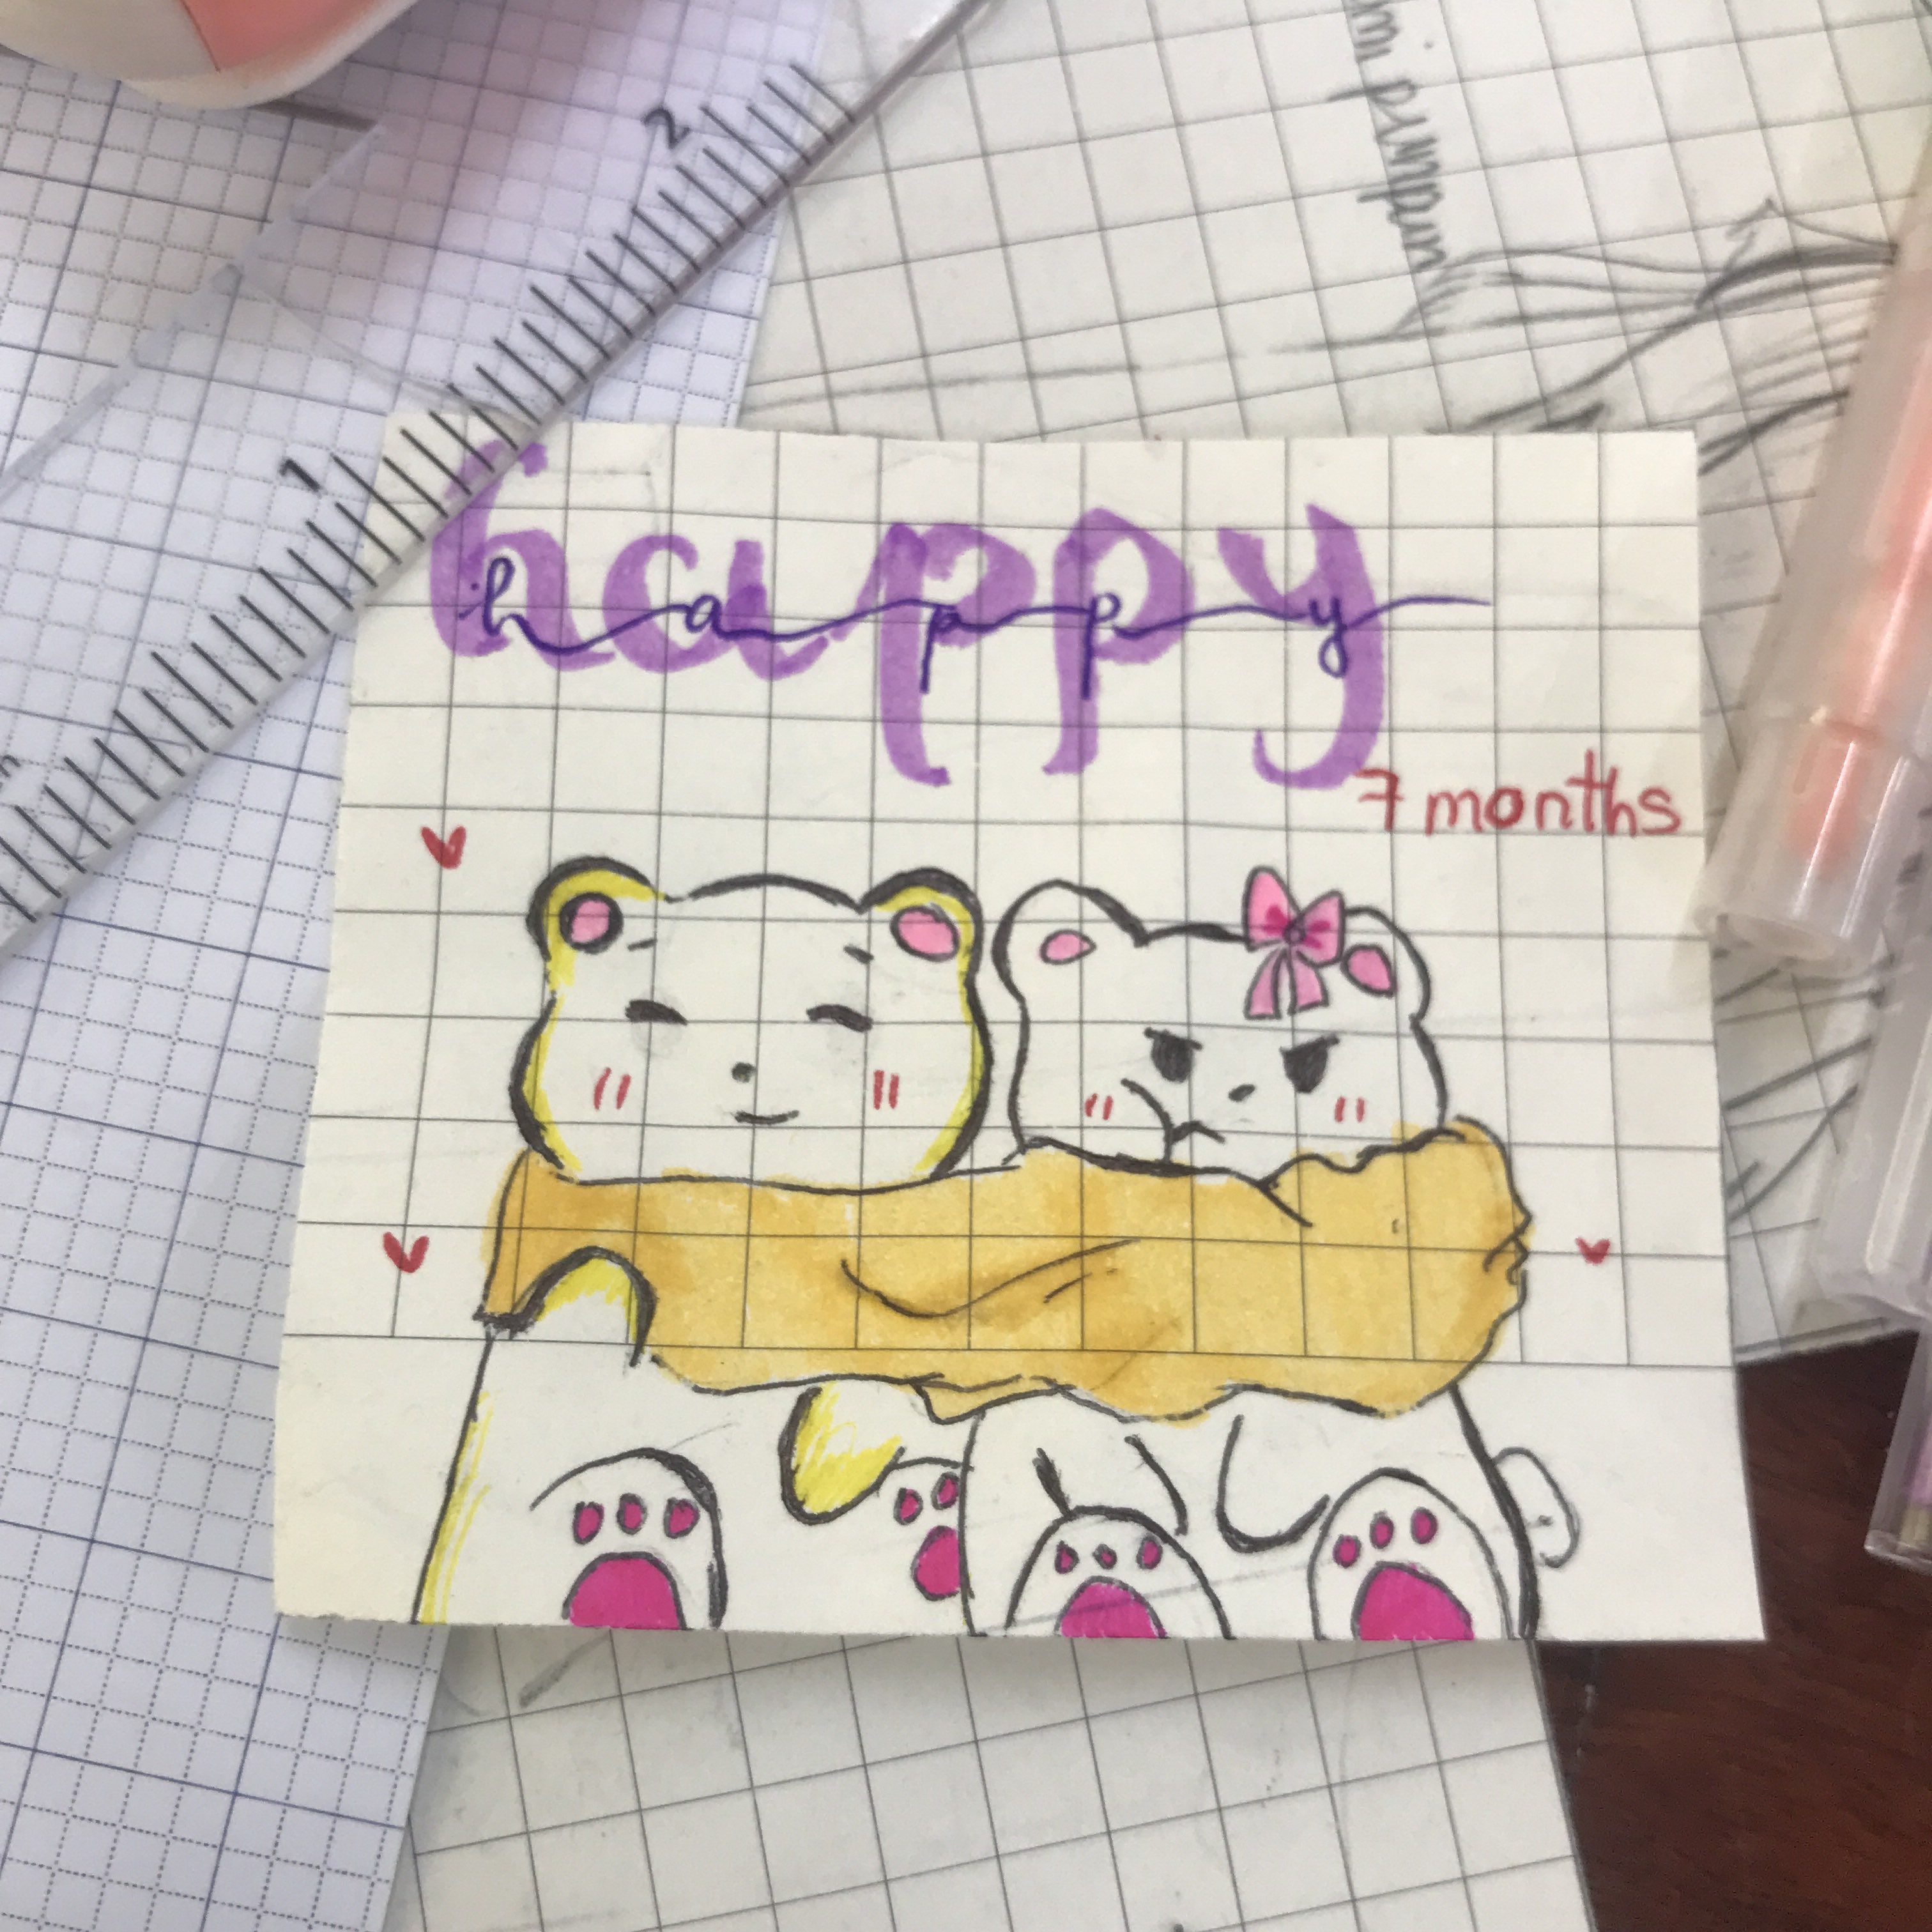 2
1
happy
happy
7 months